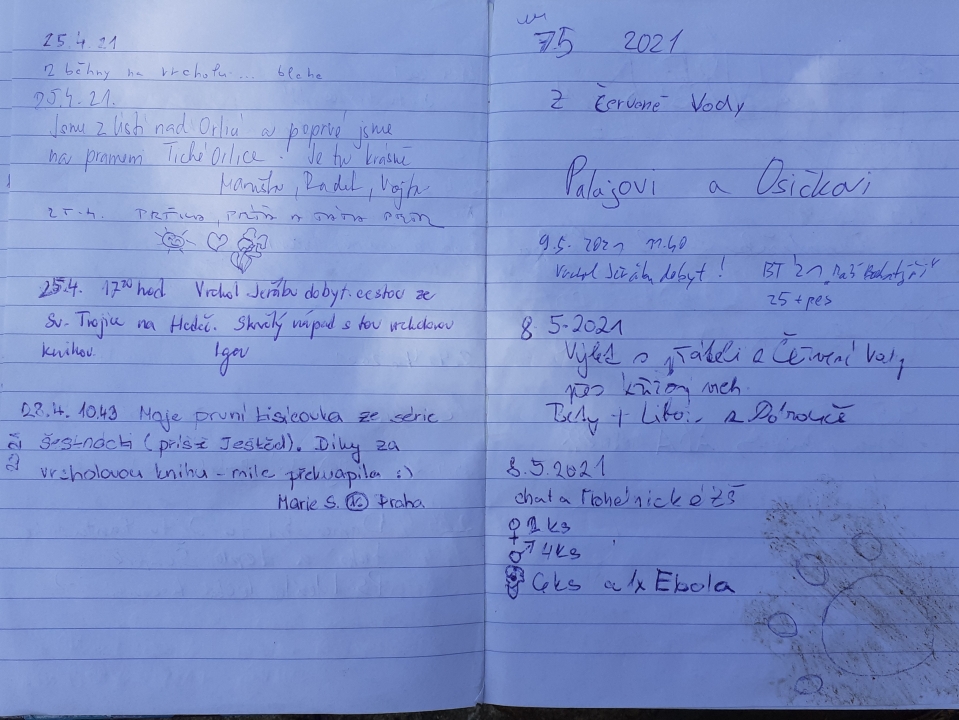 25.4.21
2 běhny na vrcholu... blaha
25.4.21.
Jsme z Ústí nad Orlicí a poprvé jsme
na prameni Tiché Orlice. Je tu krásně
Maruška, Radek, Vojta
25.4.
25.4. 17 hod Vrchol Jeřábu dobyt cestou ze
Sv. Trojice na Hedeč. Skvělý nápad s tou vrcholovou
knihou. Igor
28.4. 10.43 Moje první tisícovka ze série
šestnácti (příště Ještěd). Díky za
vrcholovou knihu - mile překvapila :)
Marie S. Praha
75 2021
Z Červené Vody
Palájovi a Osičkovi
9.5. 2021 11.40
Vrchol Jeřábu dobyt!
25 + pes
8. 5-2021
Výlet s přáteli z Červené Vody
přes křížový vrch.
8.5.2021
chata Mohelnické ZŠ
♀ 2 ks
♂ 4ks
6ks a 1x Ebola